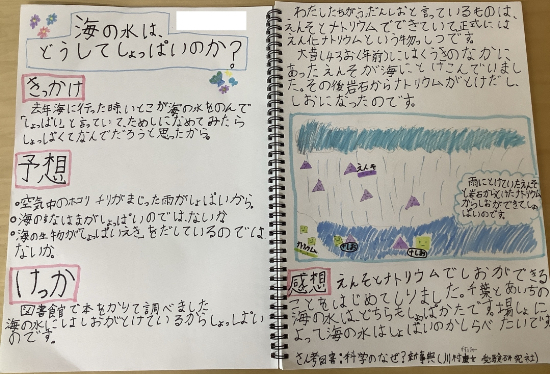 海の水は、
どうしてしょっぱいのか？
きっかけ
去年海に行った時いとこが海の水をのんで
「しょっぱい」と言っていてためしになめてみたら
しょっぱくてなんでだろうと思ったから。
予想
・空気中のホコリ チリがまじった雨がしょぱいから。
・海のすなはまがしょぱいのではないか
・海の生物がしょぱいえきをだしているのでは
ないか。
けっか
図書館で本をかりて調べました
海の水にはしおがとけているからしょっぱい
のです。
わたしたちがふだんしおと言っているものは、
えんそとナトリウムでできていて正式には
えん化ナトリウムという物っしつです。
大昔(43おく年前)にはくうきのなかに
あったえんそが海にとけこんでいりまし
た。その後岩石からナトリウムがとけだし
しおになったのです。
えんそ
雨にとけていたえんそ
と岩石からとけたナトリウム
からしおができてしょ
ぱいのです。
感想
えんそとナトリウムでしおができる
ことをはじめてしりました。千葉とあいちの
海の水はどちらもしょぱかたです場しょに
よって海の水はしょぱいのかしらべたいです
さん考図書:科学のなぜ?新事典